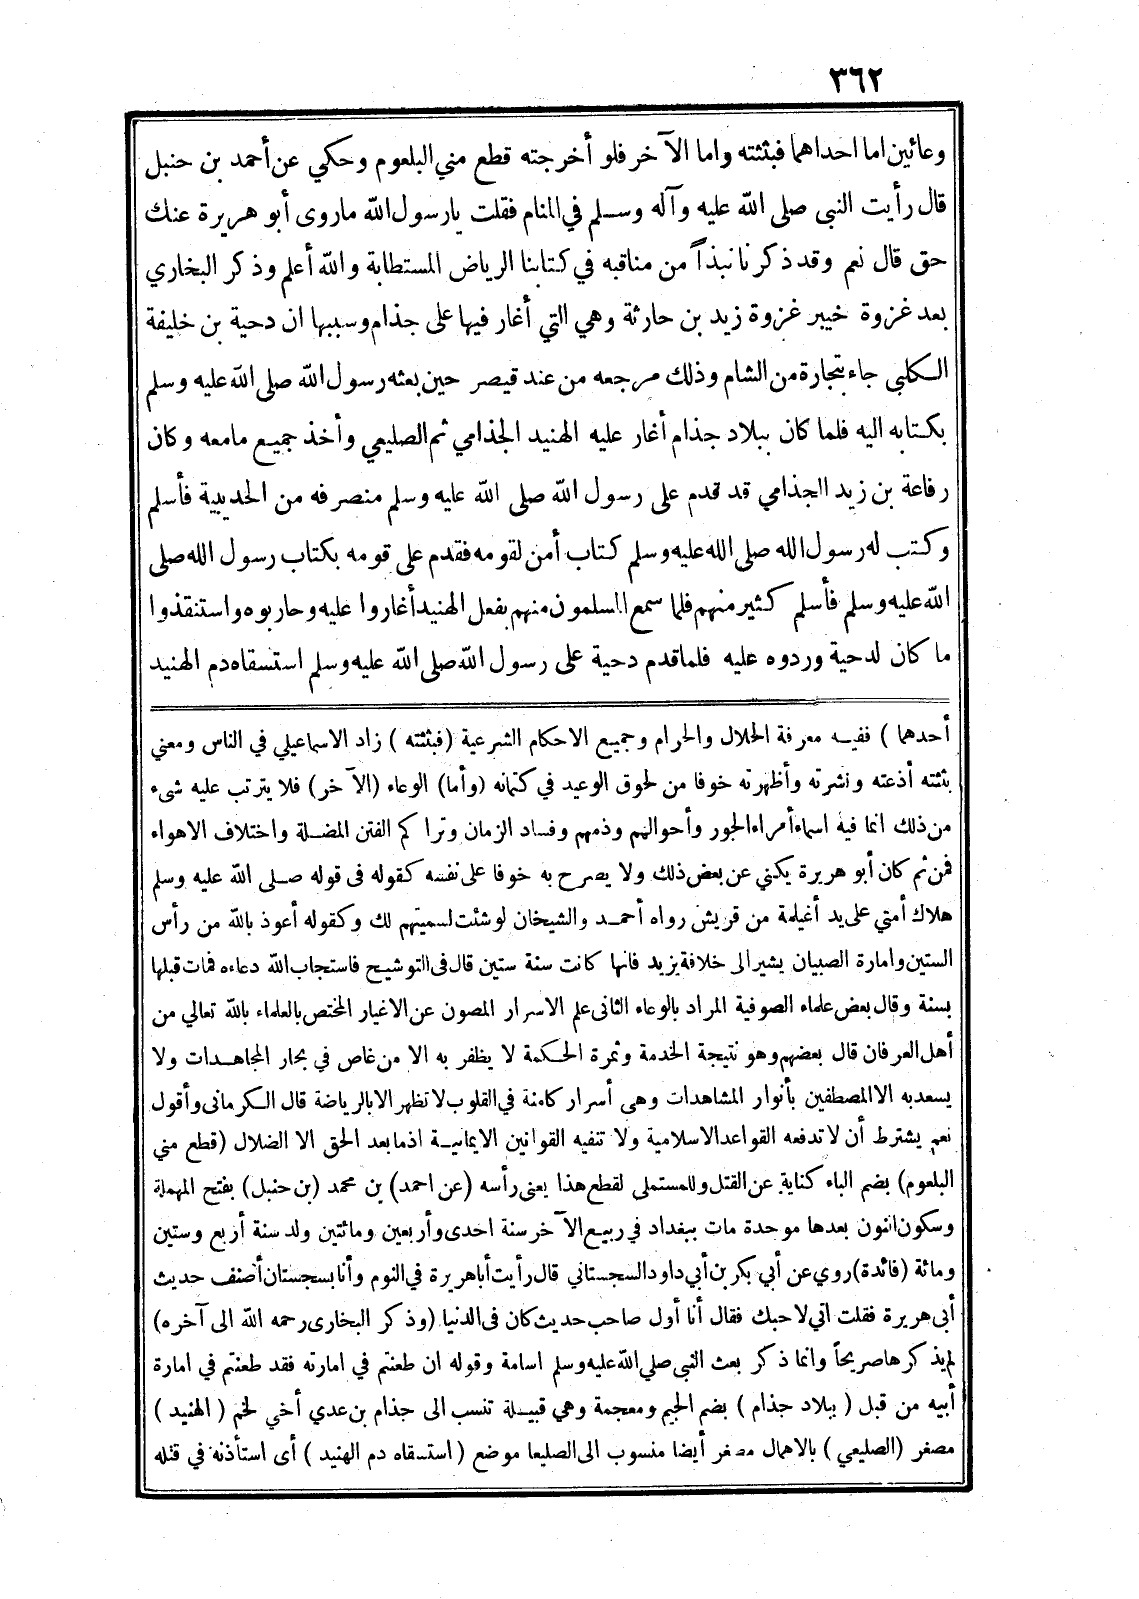 ٣٦٢
وعائين اما احداهما فبثثته واما الآخر فلو أخرجته قطع مني البلعوم وحكي عن أحمد بن حنبل
قال رأيت النبى صلى الله عليه وآله وسلم في المنام فقلت يارسول الله ماروى أبو هريرة عنك
حق قال نعم وقد ذكرنا نبذاً من مناقبه في كتابنا الرياض المستطابة والله أعلم وذكر البخاري
بعد غزوة خيبر غزوة زيد بن حارثة وهي التي أغار فيها على جذام وسببها ان دحية بن خليفة
الكلبي جاء بتجارة من الشام وذلك مرجعه من عند قيصر حين بعثه رسول الله صلى الله عليه وسلم
بكتابه اليه فلما كان ببلاد جذام أغار عليه الهنيد الجذامي ثم الصليعي وأخذ جميع مامعه وكان
رفاعة بن زيد الجذامي قد قدم على رسول الله صلى الله عليه وسلم منصرفه من الحديبية فأسلم
وكتب له رسول الله صلى الله عليه وسلم كتاب أمن لقومه فقدم على قومه بكتاب رسول الله صلى
الله عليه وسلم فأسلم كثير منهم فلما سمع المسلمون منهم بفعل الهنيد أغاروا عليه وحاربوه واستنقذوا
ما كان لدحية وردوه عليه فلما قدم دحية على رسول الله صلى الله عليه وسلم استسقاه دم الهنيد
أحدهما ) ففيه معرفة الحلال والحرام وجميع الاحكام الشرعية (فبثثته ) زاد الاسماعيلي في الناس ومعني
بثثته أذعته ونشرته وأظهرته خوفا من لحوق الوعيد في كتمانه (وأما) الوعاء (الآخر) فلا يترتب عليه شىء
من ذلك انما فيه اسماء أمراء الجور وأحوالهم وذمهم وفساد الزمان وتراكم الفتن المضلة واختلاف الاهواء
فمن ثم كان أبو هريرة يكني عن بعض ذلك ولا يصرح به خوفا على نفسه كقوله فى قوله صلى الله عليه وسلم
هلاك أمتي على يد أغيلمة من قريش رواه أحمد والشيخان لو شئت لسميتهم لك وكقوله أعوذ بالله من رأس
الستين وامارة الصبيان يشير الى خلافة يزيد فانها كانت سنة ستين قال فى التوشيح فاستجاب الله دعاءه فمات قبلها
بسنة وقال بعض علماء الصوفية المراد بالوعاء الثانى علم الاسرار المصون عن الاغيار المختص بالعلماء بالله تعالي من
أهل العرفان قال بعضهم وهو نتيجة الخدمة وثمرة الحكمة لا يظفر به الا من غاص في بحار المجاهدات ولا
يسعد به الا المصطفين بأنوار المشاهدات وهى أسرار كامنة في القلوب لا تظهر الا بالرياضة قال الكرمانى وأقول
نعم يشترط أن لا تدفعه القواعد الاسلامية ولا تنفيه القوانين الايمانية اذ ما بعد الحق الا الضلال (قطع مني
البلعوم) بضم الباء كناية عن القتل وللمستملى لقطع هذا يعنى رأسه (عن احمد) بن محمد (بن حنبل) بفتح المهملة
وسكون النون بعدها موحدة مات ببغداد في ربيع الآخر سنة احدى وأربعين ومائتين ولد سنة أربع وستين
ومائة (فائدة) روي عن أبي بكر بن أبي داود السجستاني قال رأيت أبا هريرة في النوم وأنا بسجستان أصنف حديث
أبى هريرة فقلت اني لاحبك فقال أنا أول صاحب حديث كان فى الدنيا (وذكر البخارى رحمه الله الى آخره)
لم يذكرها صريحاً وانما ذكر بعث النبي صلى الله عليه وسلم اسامة وقوله ان طعنتم في امارته فقد طعنتم في امارة
أبيه من قبل ( ببلاد جذام ) بضم الجيم ومعجمة وهي قبيلة تنسب الى جذام بن عدي أخي لخم ( الهنيد )
مصغر (الصليعي ) بالاهمال مصغر أيضا منسوب الى الصليعا موضع ( استسقاه دم الهنيد ) أى استأذنه في قتله